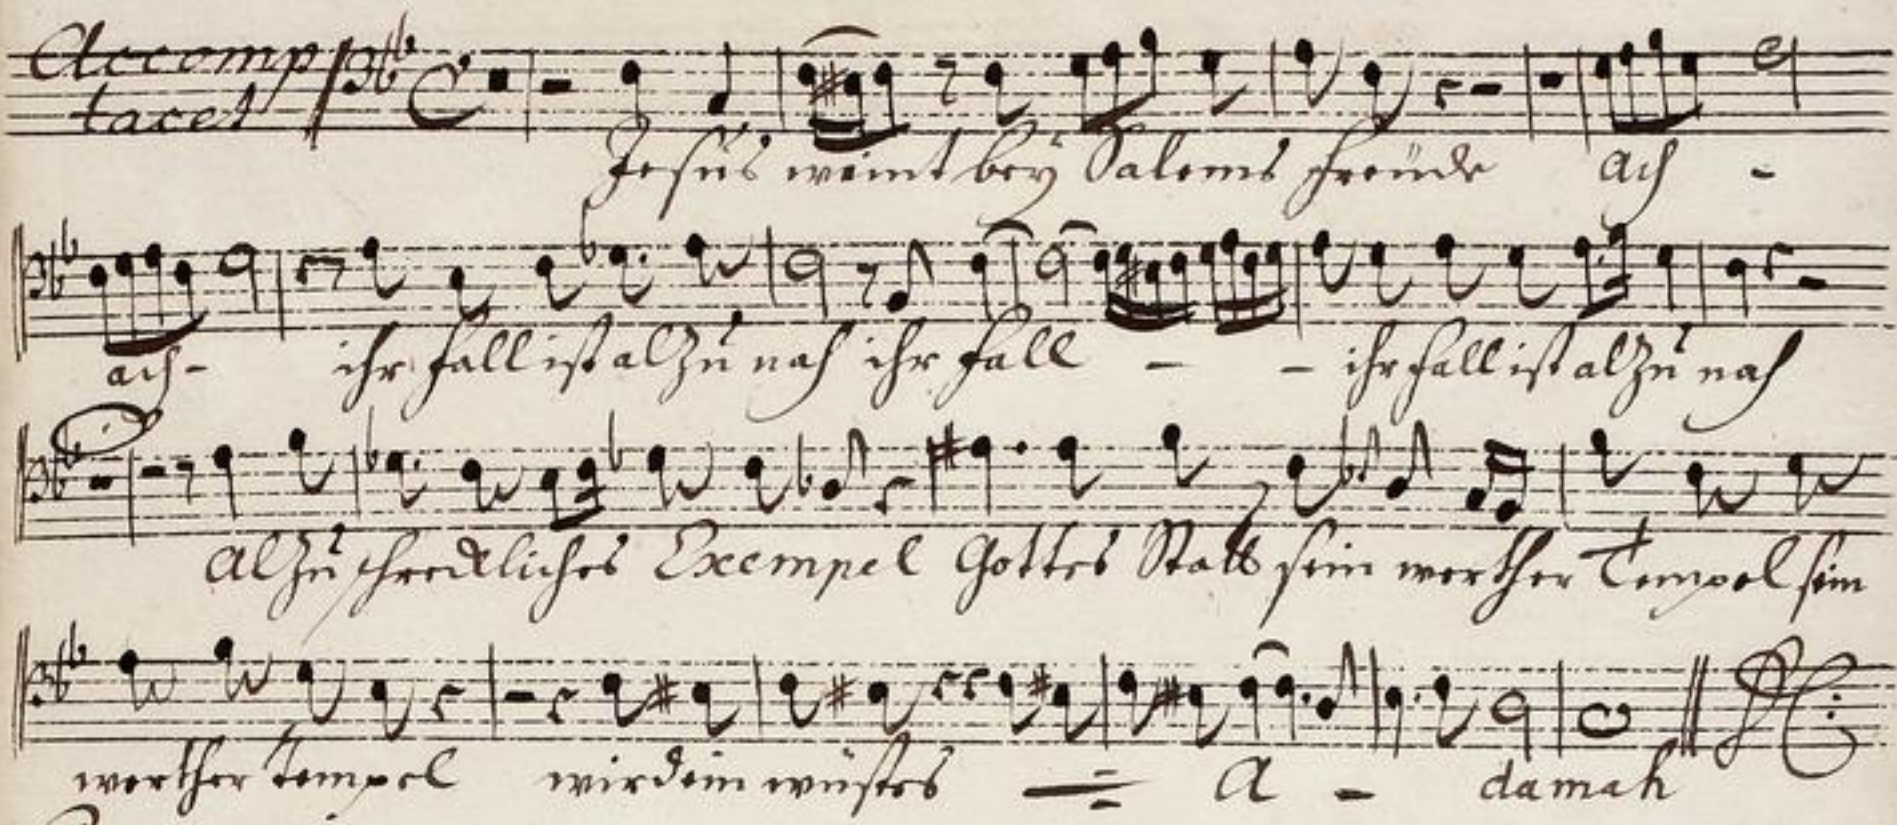 Accomp
tacet
Jesus weint bey Salems Freude ach -
ach - ihr Fall ist alzu nah ihr Fall - - ihr Fall ist alzu nah
Alzu schreckliches Exempel Gottes Statt sein werther Tempel sein
werther Tempel wird ein wüstes = A - damah
DC: